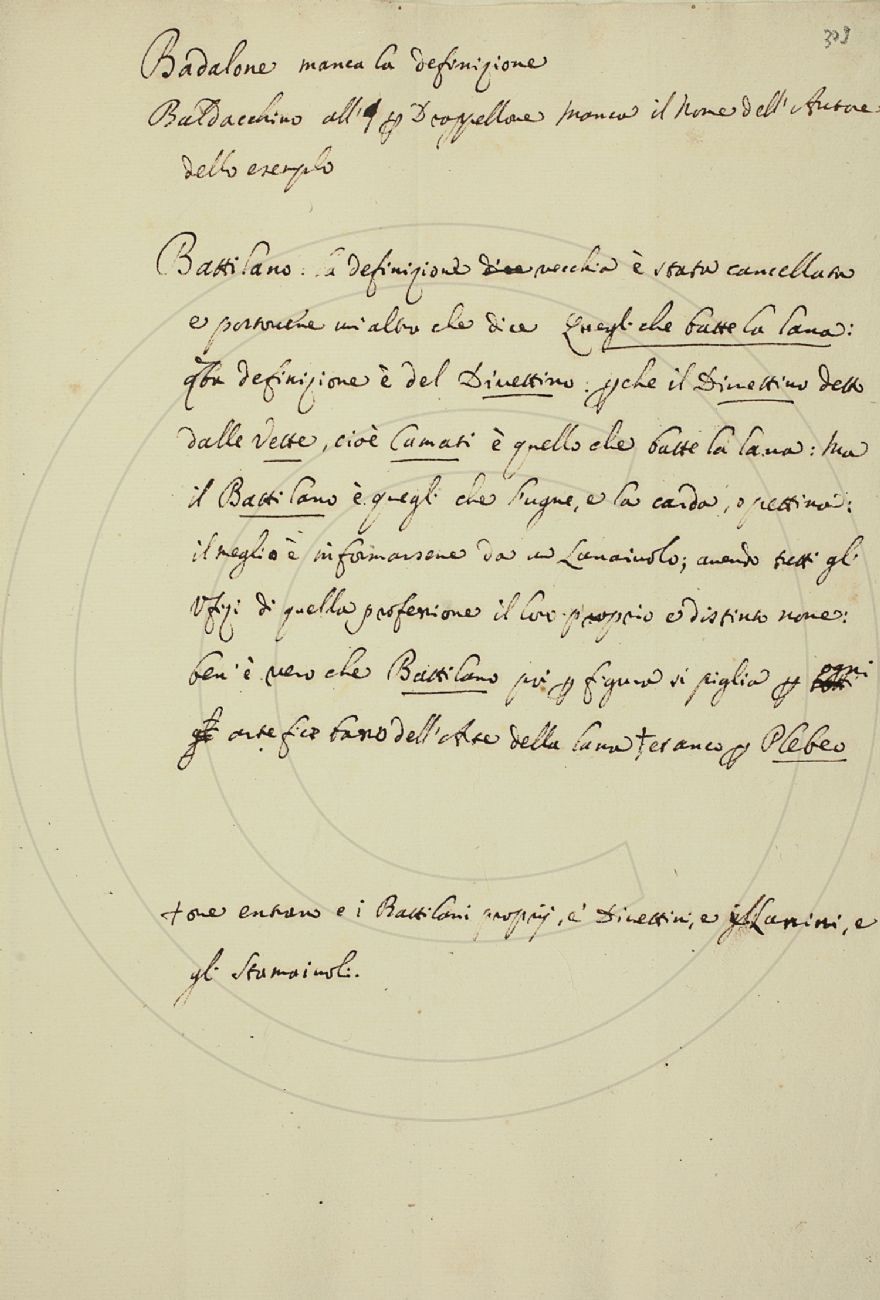 309
Badalone manca la definizione
Baldacchino all' § ꝑ Drappellone manca il Nome dell'Autore
dello esemplo
Battilano: la definizione dice vecchia è stata cancellata
e postone un altra che dice Quegli che batte la lana:
q̃sta definizione è del Divettino: ꝑche il Divettino detto
dalle Vette, cioè Camati è quello che batte la lana: Ma
il Battilano è quegli che l'ugne, e la carda, o pettina:
il meglio è informarsene da un Lanaiuolo; avendo tutti gli
Ufizi di quella professione il lor proprio e distinto nome:
ben' è vero che Battilano poi ꝑ figura si piglia ꝑ ogni
artefice basso dell'Arte della lana † et anco ꝑ Plebeo
† ove entrano e i Battilani proprij, e' Divettini, e Lanini, e
gli Stamaiuoli.